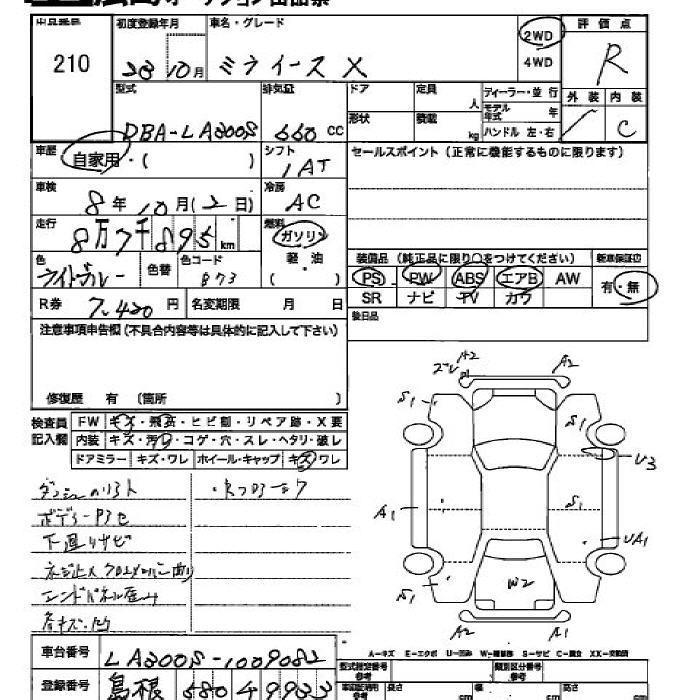 210
初度登録年月
28 10月
車名・グレード
ミライース X
2WD
4WD
評価点
R
外装 内装
C
型式
DBA-LA300S
排気量
660 CC
ドア
定員
人
形状
積載
kg
ディーラー・並行
モデル年式 年
ハンドル 左・右
車歴
自家用・( )
シフト
IAT
セールスポイント(正常に機能するものに限ります)
車検
8年10月(2日)
冷房
AC
走行
8万7千895km
燃料
ガソリン
軽・油
( )
色
ライトグレー
色替
色コード
B73
装備品(純正品に限り○をつけてください)
新車保証書
PS PW ABS エアB AW
SR ナビ TV カワ
有・無
R券 7,420円 名変期限 月 日
後日品
注意事項申告欄(不具合内容等は具体的に記入して下さい)
修復歴 有 (箇所 )
検査員
記入欄
FW キズ・飛石・ヒビ割・リペア跡・X要
内装 キズ・汚れ・コゲ・穴・スレ・ヘタリ・破レ
ドアミラー キズ・ワレ ホイール・キャップ キズ・ワレ
下廻りサビ
A2
A2
S1
S1
U3
A1
S1
UA1
S1
W2
S1
A2
A1
A-キズ E-エクボ U-凹み W-補修跡 S-サビ C-腐食 XX-交換済
車台番号
LA300S-1009082
型式指定番号
参考
類別区分番号
参考
登録番号
島根 580 4 9933
長さ cm 幅 cm 高さ cm